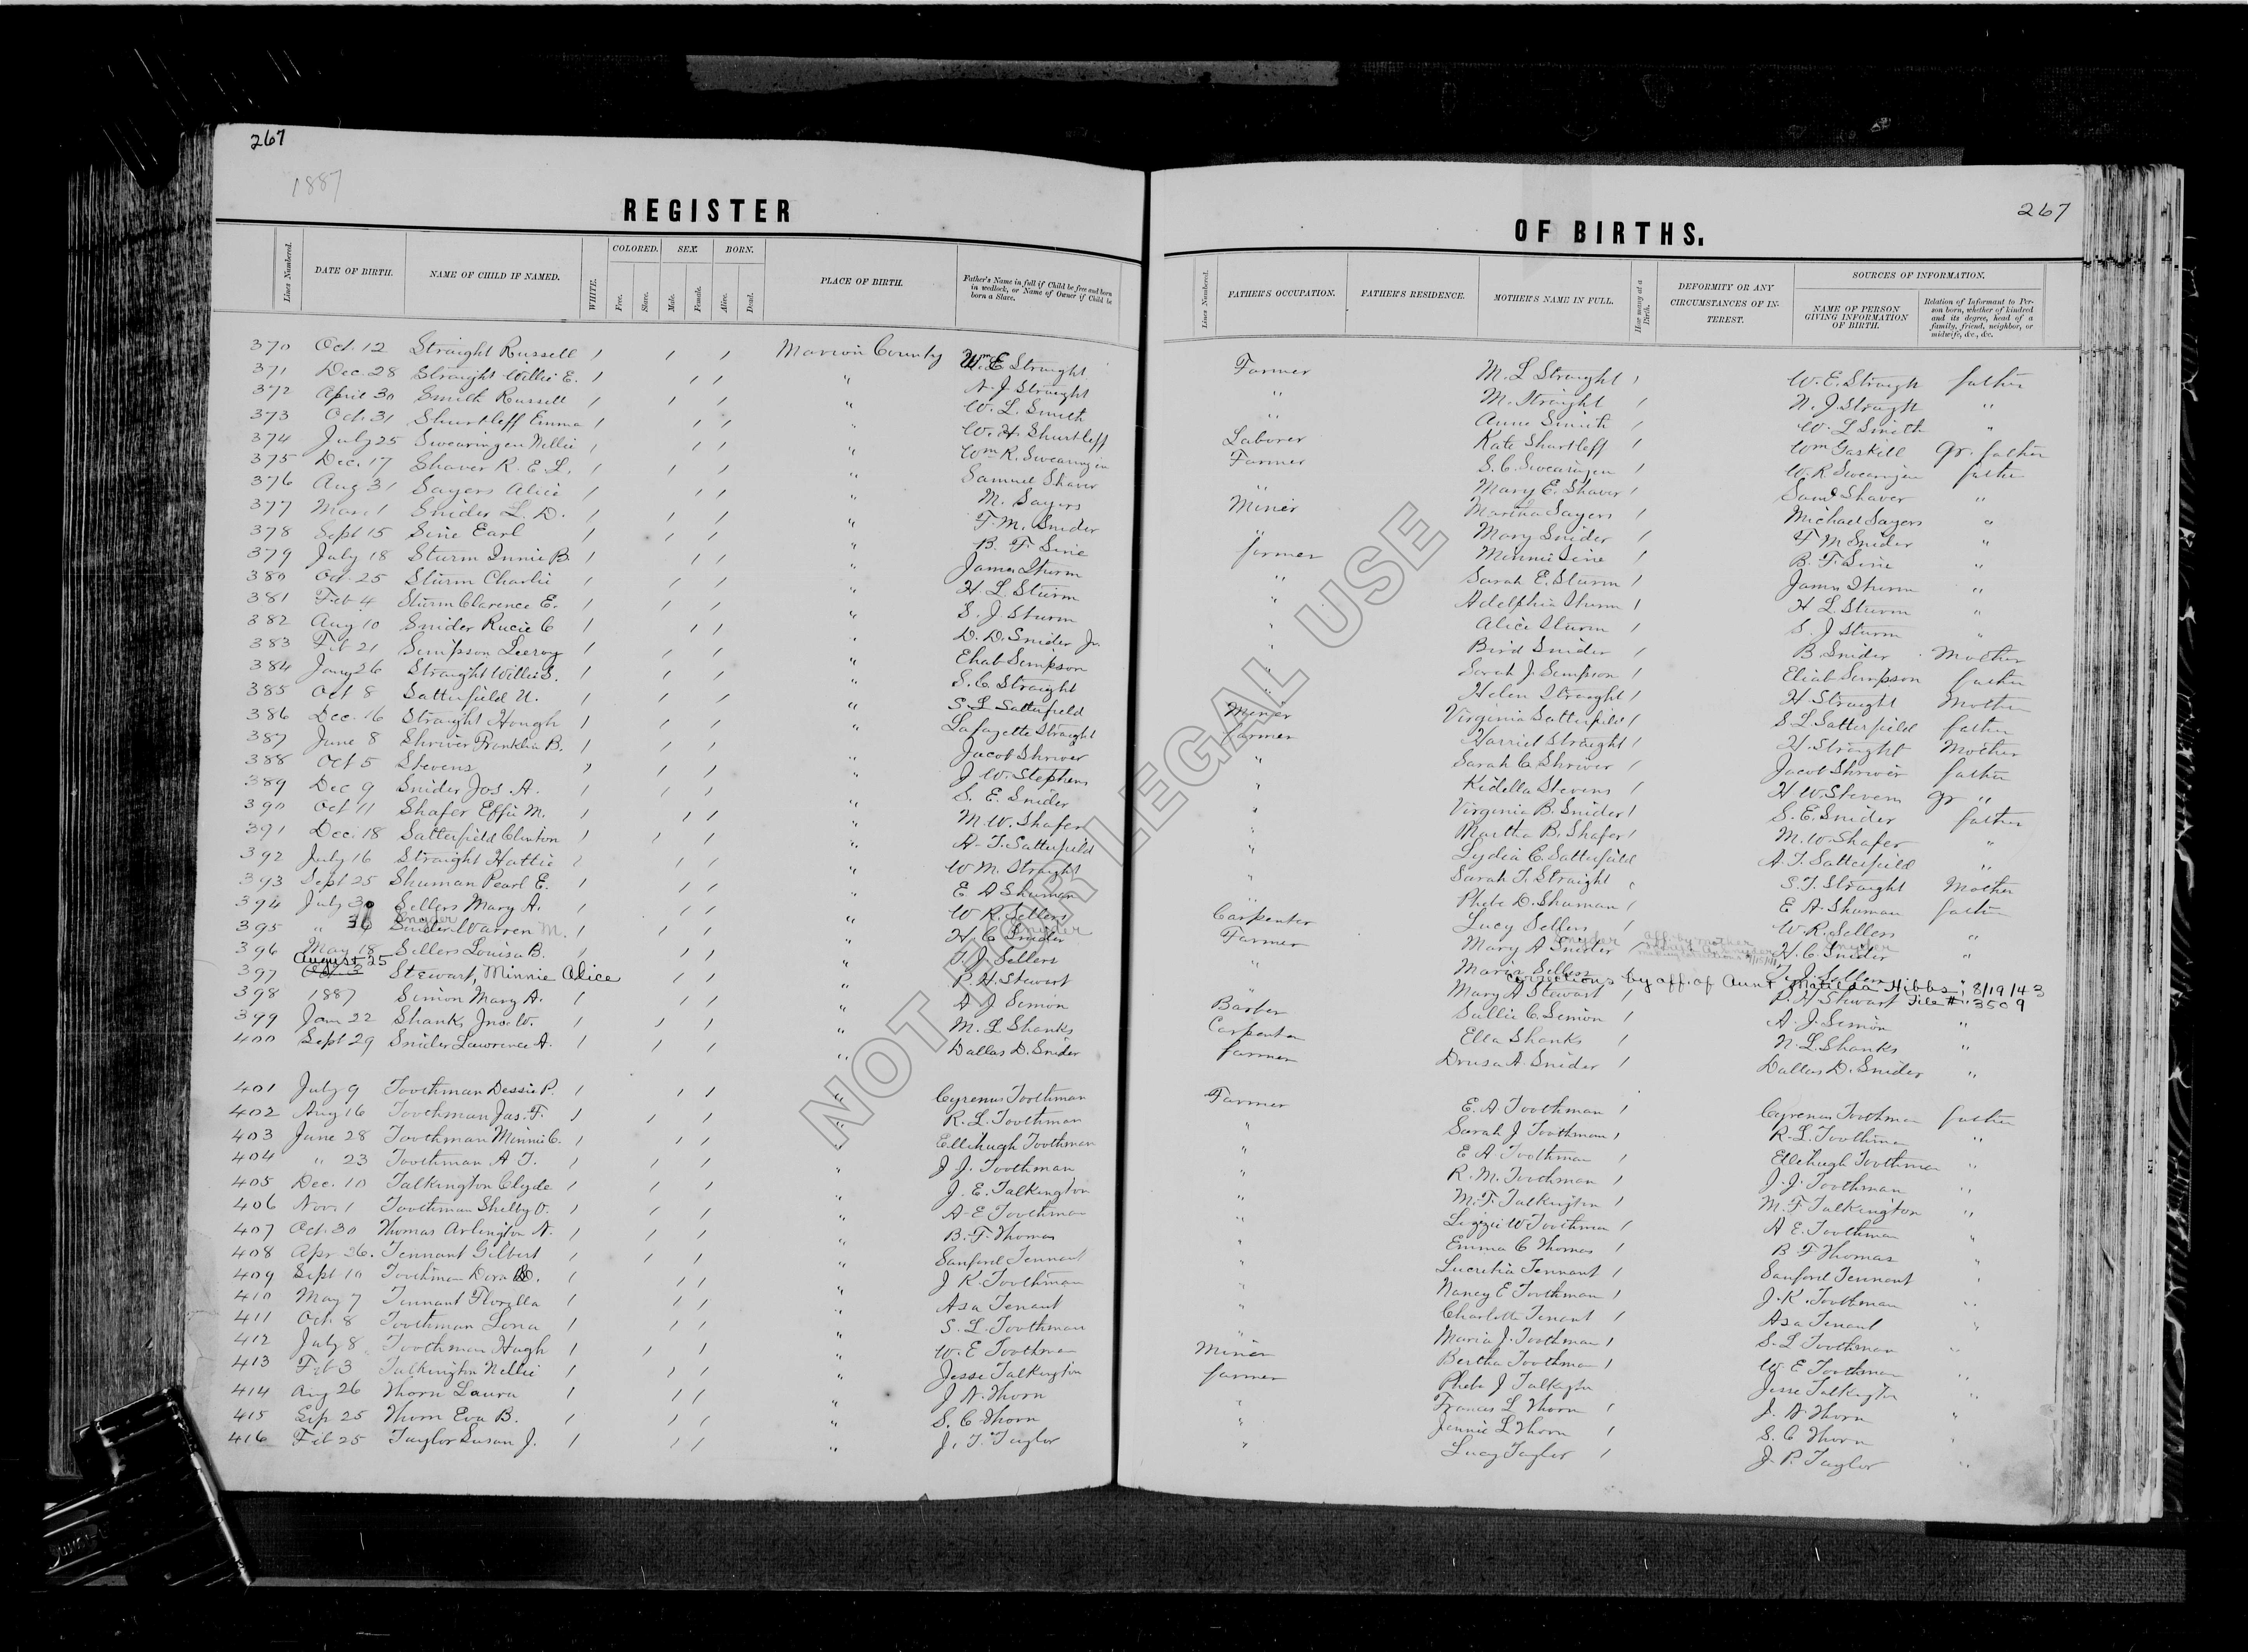 267
1887
REGISTER
Lines Numbered. DATE OF BIRTH. NAME OF CHILD IF NAMED. WHITE. COLORED. Free. Slave. SEX. Male. Female. BORN. Alive. Dead. PLACE OF BIRTH. Father's Name in full if Child be free and born in wedlock, or Name of Owner if Child be born a Slave.
370 Oct. 12 Straight Russell / / / Marion County Wm E Straight
371 Dec. 28 Straight Willie E. / / / " N. J. Straight
372 April 30 Smith Russell / / / " W. L. Smith
373 Oct. 31 Shurtleff Emma / / / " W. H. Shurtleff
374 July 25 Swearingen Nellie / / / " Wm R. Swearingen
375 Dec. 17 Shaver R. E. L. / / / " Samuel Shaver
376 Aug 31 Sayers Alice / / / " M. Sayers
377 Mar. 1 Snider L. D. / / / " F. M. Snider
378 Sept 15 Sine Earl / / / " B. F. Sine
379 July 18 Sturm Innie B. / / / " James Sturm
380 Oct. 25 Sturm Charlie / / / " H. L. Sturm
381 Feb 4 Sturm Clarence E. / / / " S. J. Sturm
382 Aug 10 Snider Rucie C / / / " D. D. Snider Jr
383 Feb 21 Simpson Leeroy / / / " Eliab Simpson
384 Jany 26 Straight Willie S. / / / " S. C. Straight
385 Oct 8 Satterfield U. / / / " S L Satterfield
386 Dec. 16 Straight Hough / / / " Lafayette Straight
387 June 8 Shriver Franklin B. / / / " Jacob Shriver
388 Oct 5 Stevens / / / " J. W. Stephens
389 Dec 9 Snider Jos. A. / / / S. E. Snider
390 Oct 11 Shafer Effie M. / / / " M. W. Shafer
391 Dec. 18 Satterfield Clinton / / / " A. T. Satterfield
392 July 16 Straight Hattie / / / " W M. Straight
393 Sept 25 Shuman Pearl E. / / / " E A Shuman
394 July 30 Sellers Mary A. / / / " W R. Sellers
Snyder Snyder
395 " Snider Warren M. / / / " H. C Snider
396 May 18 Sellers Louisa B. / / / " T. J. Sellers
August 25
397 Stewart, Minnie Alice / / " P. H. Stewart
398 1887 Simon Mary A. / / / " A J Simon
399 Jan 22 Shanks Jno. W. / / / " M. L Shanks
400 Sept 29 Snider Lawrence A. / / / " Dallas D. Snider
401 July 9 Toothman Dessie P. / / / " Cyrenus Toothman
402 Aug 16 Toothman Jas. F. / / / " R. L. Toothman
403 June 28 Toothman Minnie C. / / / " Ellihugh Toothman
404 " 23 Toothman A T. / / / " J. J. Toothman
405 Dec. 10 Talkington Clyde / / / " J. E. Talkington
406 Nov. 1 Toothman Shelby O. / / / " A E Toothman
407 Oct. 30 Thomas Arlington N. / / / " B. F. Thomas
408 Apr 26. Tennant Gilbert / / / " Sanford Tennant
409 Sept 10 Toothman Dora D. / / / " J K Toothman
410 May 7 Tennant Florella / / / " Asa Tenant
411 Oct 8 Toothman Lona / / / " S. L. Toothman
412 July 8 Toothman Hugh / / / " W. E Toothman
413 Feb 3 Talkington Nellie / / / " Jesse Talkington
414 Aug 26 Thorn Laura / / / " J N. Thorn
415 Sep 25 Thorn Eva B. / / / " S. C Thorn
416 Feb 25 Taylor Susan J. / / / " J. T. Taylor
267
OF BIRTHS.
Lines Numbered. FATHER'S OCCUPATION. FATHER'S RESIDENCE. MOTHER'S NAME IN FULL. How many at a Birth. DEFORMITY OR ANY CIRCUMSTANCES OF INTEREST. SOURCES OF INFORMATION. NAME OF PERSON GIVING INFORMATION OF BIRTH. Relation of Informant to Person born, whether of kindred and its degree, head of a family, friend, neighbor, or midwife, &c., &c.
Farmer M. L Straight / W. E. Straight father
" M. Straight / N. J. Straight "
" Anna Smith / W. L Smith "
Laborer Kate Shurtleff / Wm Gaskill Gr. father
Farmer S. C. Swearingen / W. R Swearingen father
" Mary E. Shaver / Saml Shaver "
Miner Martha Sayers / Michael Sayers "
" Mary Snider / F M Snider "
farmer Minnie Sine / B. F. Sine "
" Sarah E. Sturm / James Sturm "
" Adelphia Sturm / H L Sturm "
" Alice Sturm / S. J Sturm "
" Bird Snider / B. Snider Mother
" Sarah J. Simpson / Eliab Simpson father
" Helen Straight / H Straight Mother
Miner Virginia Satterfield / S. L. Satterfield father
farmer Harriet Straight / H. Straight Mother
" Sarah C Shriver / Jacob Shriver father
" Kidella Stevens / H. W. Stevens Gr "
" Virginia B. Snider / S. E. Snider father
" Martha B. Shafer / M. W. Shafer "
" Lydia C. Satterfield A. T. Satterfield "
" Sarah T. Straight S. T. Straight Mother
" Phebe D. Shuman / E A. Shuman father
Carpenter Lucy Sellers / W R. Sellers "
Snyder aff. by mother Snyder
Farmer Mary A Snider / H. C. Snider "
" Maria Sellers T. J. Sellers
Corrections by aff. of Aunt Matilda Hibbs: 8/19/43
Mary A Stewart / P. H Stewart File # 3509
Barber Sallie C. Simon / A. J. Simon "
Carpenter Ella Shanks / N. L. Shanks "
farmer Drusa A. Snider / Dallas D. Snider "
Farmer E. A. Toothman / Cyrenus Toothman father
" Sarah J Toothman / R. L. Toothman "
" E A Toothman / Ellihugh Toothman "
" R. M. Toothman / J. J. Toothman "
" M. F. Talkington / M. F Talkington "
" Lizzie W Toothman / A E. Toothman "
" Emma C Thomas / B F Thomas "
" Lucretia Tennant / Sanford Tennant "
" Nancy E Toothman / J. K. Toothman "
" Charlotte Tenant / Asa Tenant "
" Maria J. Toothman / S. L Toothman "
Miner Bertha Toothman / W E Toothman "
farmer Phebe J Talkington Jesse Talkington "
" Frances L Thorn / J. N. Thorn "
" Jennie L Thorn / S. C Thorn "
" Lucy Taylor / J. P. Taylor "
NOT FOR LEGAL USE